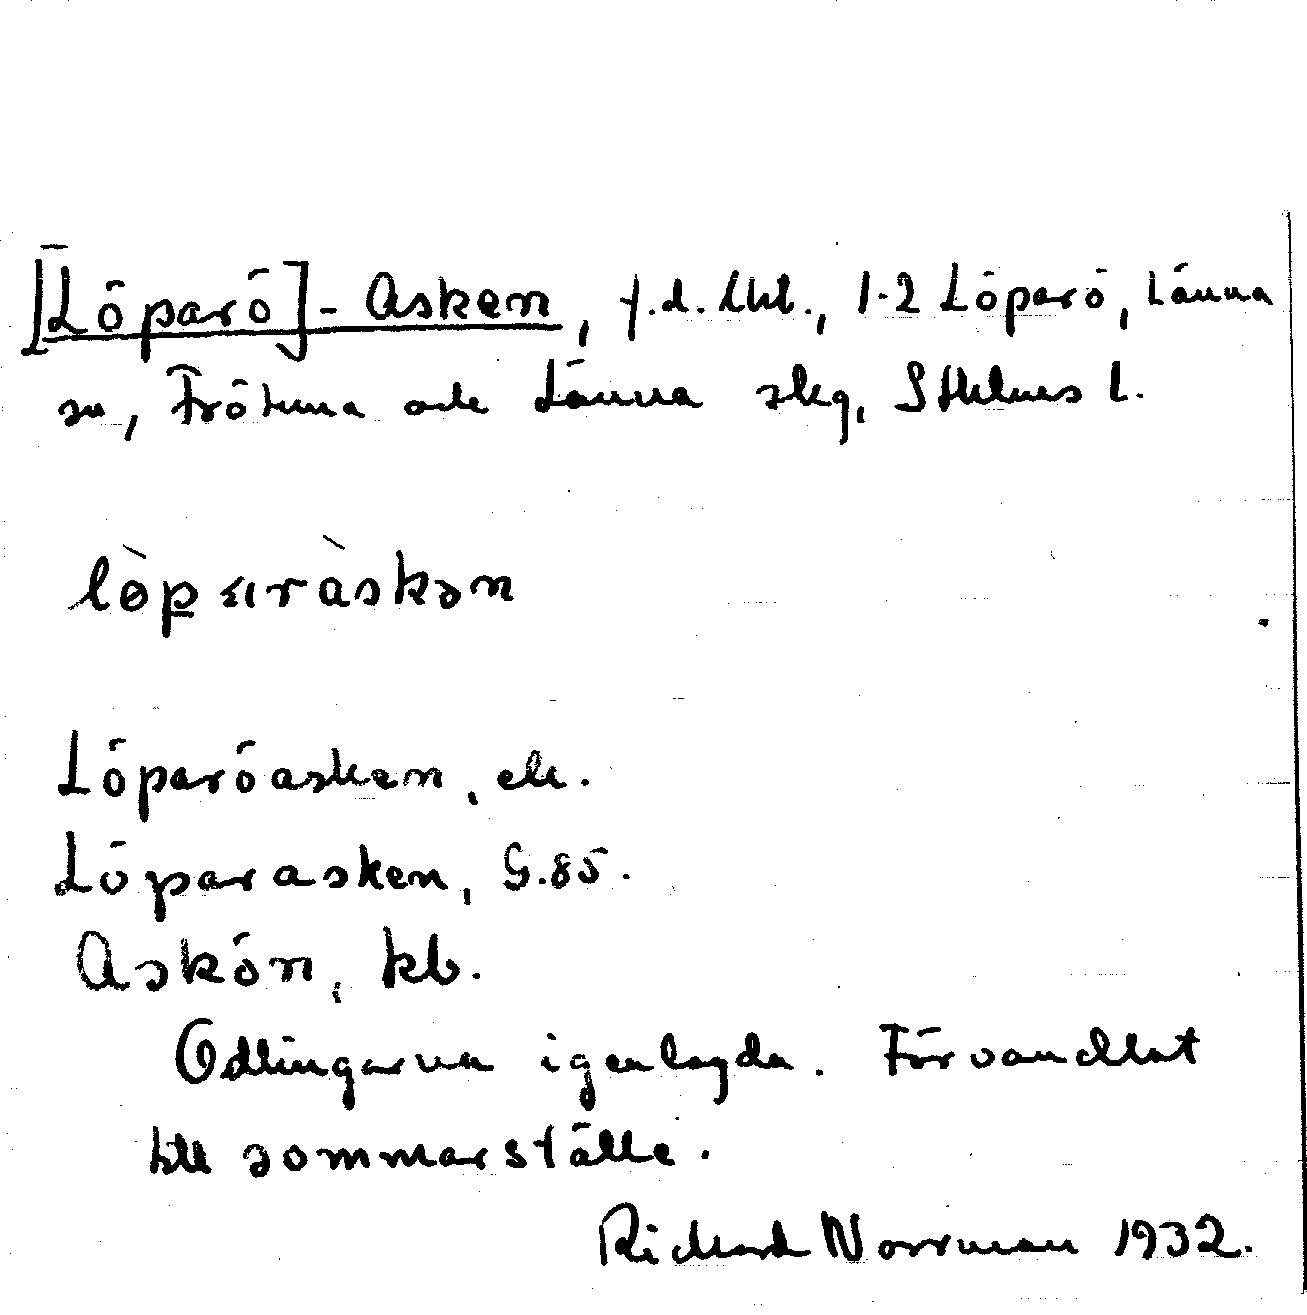 [Löparö]-Asken, f.d. lht., 1-2 Löparö, Länna
sn, Frötuna och Länna skg, Sthlms l.
Löparöasken, ek.
Löparasken, G.85.
Askön, kb.
Odlingarna igenlagda. Förvandlat
till sommarställe.
Rickard Norrman 1932.